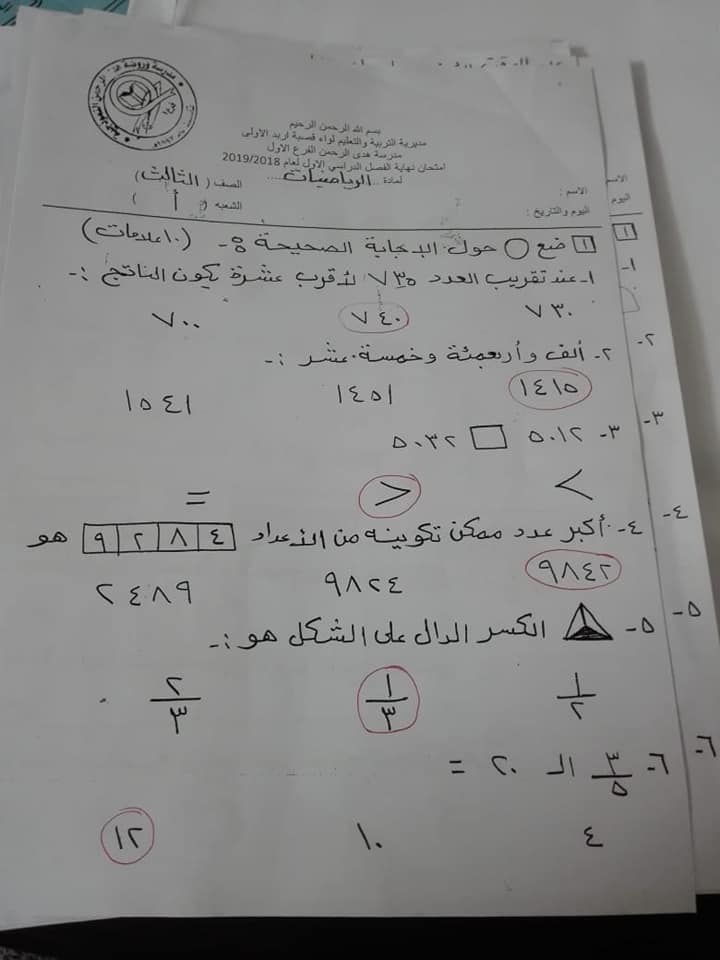 بسم الله الرحمن الرحيم
مديرية التربية والتعليم لواء قصبة اربد الاولى
مدرسة هدى الرحمن الفرع الاول
امتحان نهاية الفصل الدراسي الاول لعام 2019/2018
لمادة .. الرياضيات .... الصف ( الثالث )
الاسم :
الشعبه ( أ )
اليوم والتاريخ :
١ ضع ○ حول الإجابة الصحيحة :- (١٠ علامات)
١- عند تقريب العدد ٧٣٥ لأقرب عشرة يكون الناتج :-
٧٣٠ ٧٤٠ ٧٠٠
٢- ألف وأربعمئة وخمسة عشر :-
١٤١٥ ١٤٥١ ١٥٤١
٣- ٥٠١٢ □ ٥٠٣٢
< > =
٤- أكبر عدد ممكن تكوينه من الأعداد ٩ ٢ ٨ ٤ هو
٩٨٤٢ ٩٨٢٤ ٢٤٨٩
٥- الكسر الدال على الشكل هو :-
١/٢ ١/٣ ٢/٣
٦- ٣/٥ الـ ٢٠ =
٤ ١٠ ١٢
الاسم
اليوم
١
١-
٢-
٣-
٤-
٥-
٦-